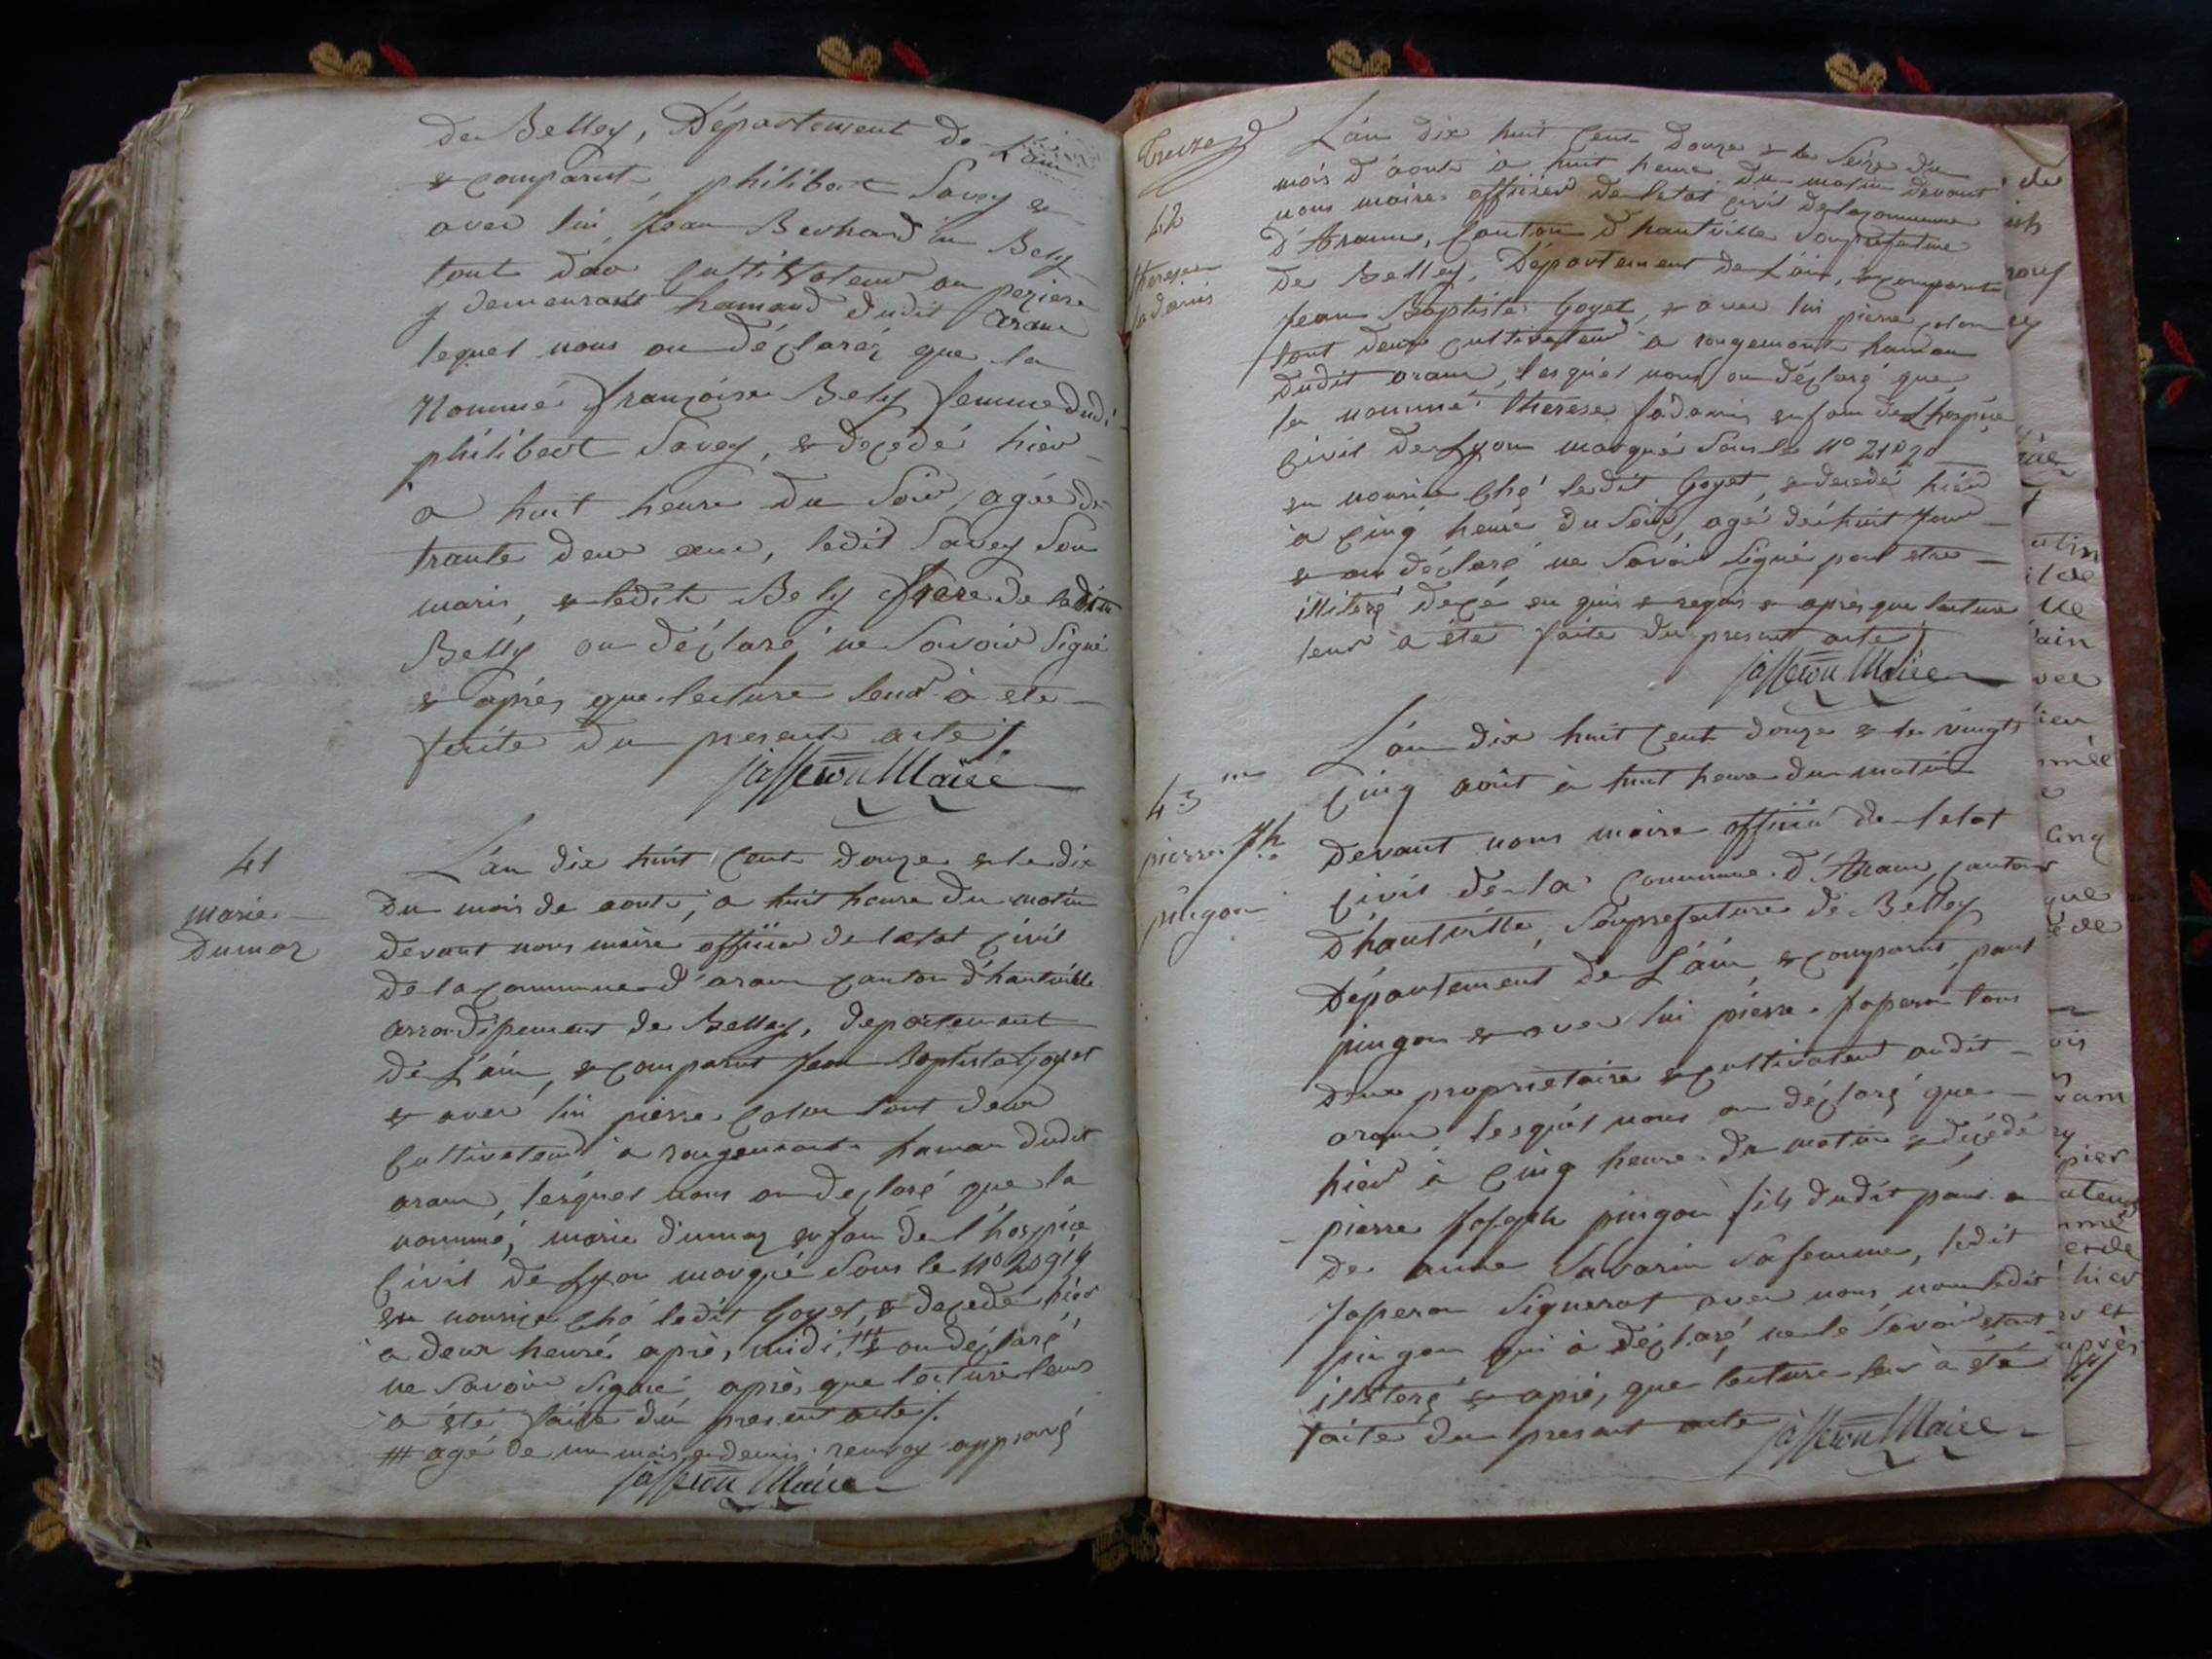 de Belley, Département de L'ain
& comparut philibert Savey &
avec lui jean Bernardin Bely
tout deux cultivateur au
y demeurant hamaud dudit aranc
lequel nous on déclaréz que la
Nommé françoise Bely femme dudi
philibert Savey, & decedé hier
a huit heure du Soir, agée de
trante deux ans, ledit Savey Son
maris, & ledit Bely frere de ladite
Belly on déclaré ne Savoir Signé
& aprés que lecture leur à ete
faite du present acte /.
jasseron Maire
41
marie
dumas
L'an dix huit Cent douze & le dix
du mois de aoute, a huit heure du matin
devant nous maire officier de letat Civil
de la commune d'aranc canton d'hauteville
arrondisement de Belley, departement
de L'ain, & comparut jean Baptiste Goyet
& avec lui pierre Colon tout deux
Cultivateur a rougemont haman dudit
aranc, lesquel nous on declaré que la
nommé, marie dumas enfan de l'hospice
Civil de Lyon marqué Sous le N° 20914
en nourice ché ledit Goyet, & decedé hier
a deux heuré aprè, midi, # & on déclaré
ne Savoir Signé, après que lecture leur
a été faite du present acte /.
# agé de un mois & demis renvoy approuvé
jasseron Maire
Treize
42
therese
fadamis
L'an dix huit Cent Douze & le Seize du
mois d'aoute à huit heure du matin devant
nous maire officier de letat civil de la commune
d'Aranc, Canton d'hauteville Souprefecture
de Belley, Département de L'ain, & comparut
jean Baptiste Goyet, & avec lui pierre colon
tout deux cultivateur a rougemont haman
dudit aranc, lesquel nous on déclaré que
la nommé therese fadamis enfan de Lhospice
Civil de Lyon marqué Sous le N° 21020
en nourice ché ledit Goyet, & decedé hier
à cinq heure du Soir, agé de huit jour
& on déclaré ne Savoir Signé pour etre
illiteré & aprés que lecture
leur a été faite du present acte /.
jasseron Maire
43
pierre jh
pingon
L'an dix huit Cent douze & le vingt
Cinq août à huit heure du matin
devant nous maire officié de l'etat
Civil de la Commune d'Aranc, canton
d'hauteville, Souprefecture de Belley
Département de L'ain, & comparut paul
pingon & avec lui piérre jaseron tous
deux propriétaire & cultivateur audit
aranc lesquél nous on déclaré que
hier à Cinq heure du matin & décédé
pierre joseph pingon fils dudit paul &
de anne Savarin Sa femme, ledit
jaseron Signerat avec nous non ledit
pingon qui à déclaré ne le Savoir etant
illiteré & apré, que lecture leur à été
faite du present acte
jasseron Maire